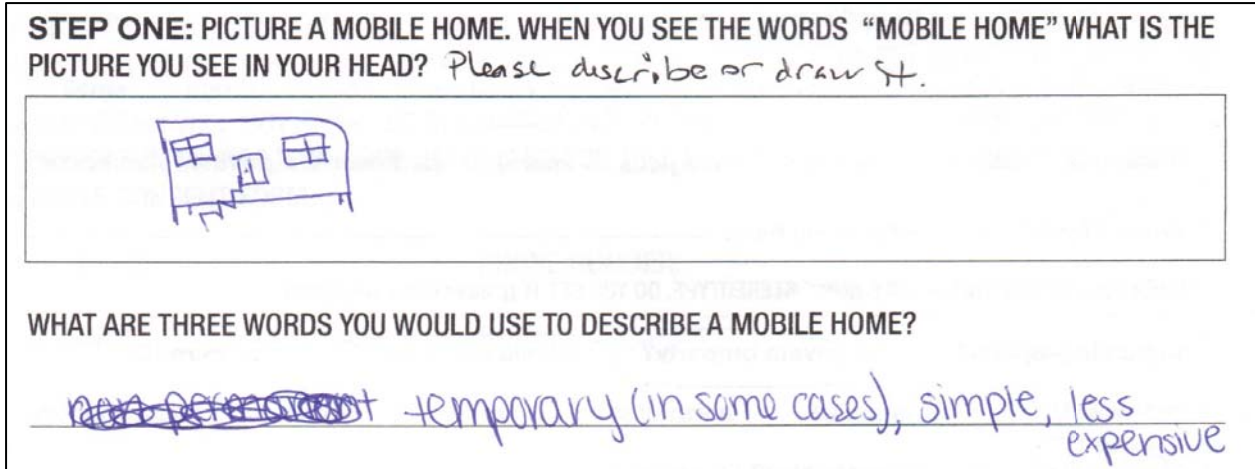 STEP ONE: PICTURE A MOBILE HOME. WHEN YOU SEE THE WORDS "MOBILE HOME" WHAT IS THE
PICTURE YOU SEE IN YOUR HEAD? Please describe or draw it.
WHAT ARE THREE WORDS YOU WOULD USE TO DESCRIBE A MOBILE HOME?
temporary (in some cases), simple, less
expensive